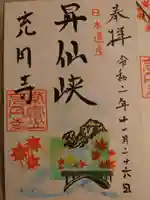 奉拝
令和二年十一月二十六日
日本遺産
昇仙峡
荒川寺